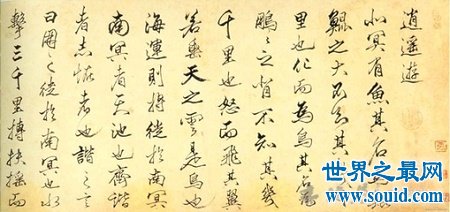 逍遥遊
北冥有魚其名為鯤
鯤之大不知其幾千
里也化而為鳥其名為
鵬々之背不知其幾
千里也怒而飛其翼
若垂天之雲是鳥也
海運則將徙於南冥
南冥者天池也齊諧
者志怪者也諧之言
曰鵬之徙於南冥也水
擊三千里摶扶摇而
世界之最网
www.souid.com